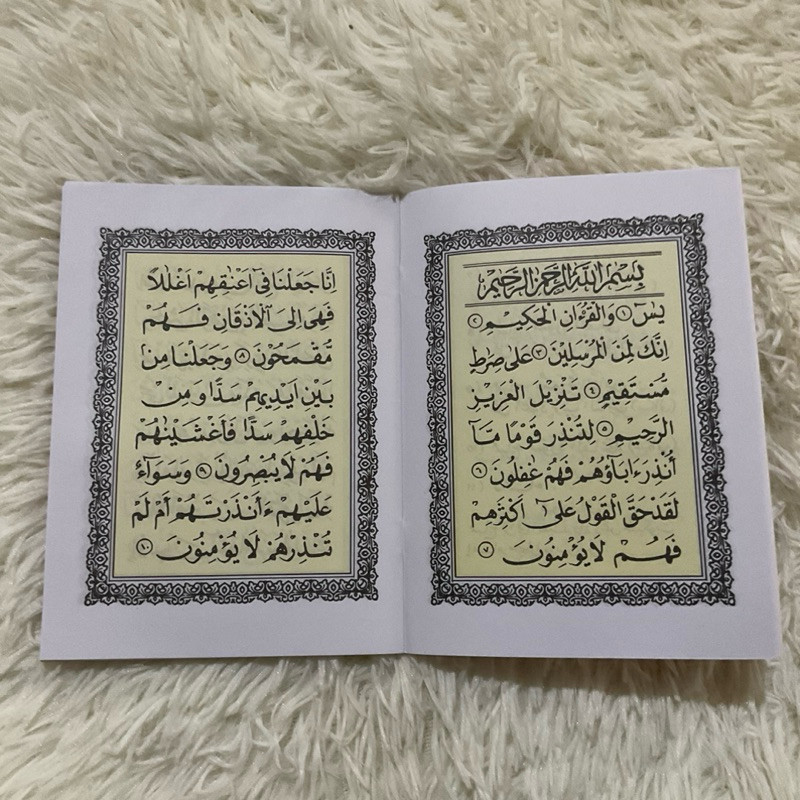 بِسْمِ اللَّهِ الرَّحْمَنِ الرَّحِيمِ
يسٓ ۝١ وَالْقُرْءَانِ الْحَكِيْمِ ۝٢
اِنَّكَ لَمِنَ الْمُرْسَلِيْنَ ۝٣ عَلٰى صِرٰطٍ
مُّسْتَقِيْمٍ ۝٤ تَنْزِيْلَ الْعَزِيْزِ
الرَّحِيْمِ ۝٥ لِتُنْذِرَ قَوْمًا مَّآ
أُنْذِرَ ءَابَاؤُهُمْ فَهُمْ غٰفِلُوْنَ ۝٦
لَقَدْ حَقَّ الْقَوْلُ عَلٰىٓ اَكْثَرِهِمْ
فَهُمْ لَا يُؤْمِنُوْنَ ۝٧
اِنَّا جَعَلْنَا فِىٓ اَعْنٰقِهِمْ اَغْلٰلًا
فَهِىَ اِلَى الْاَذْقَانِ فَهُمْ
مُّقْمَحُوْنَ ۝٨ وَجَعَلْنَا مِنْ
بَيْنِ اَيْدِيْهِمْ سَدًّا وَمِنْ
خَلْفِهِمْ سَدًّا فَاَغْشَيْنٰهُمْ
فَهُمْ لَا يُبْصِرُوْنَ ۝٩ وَسَوَآءٌ
عَلَيْهِمْ ءَاَنْذَرْتَهُمْ اَمْ لَمْ
تُنْذِرْهُمْ لَا يُؤْمِنُوْنَ ۝١٠